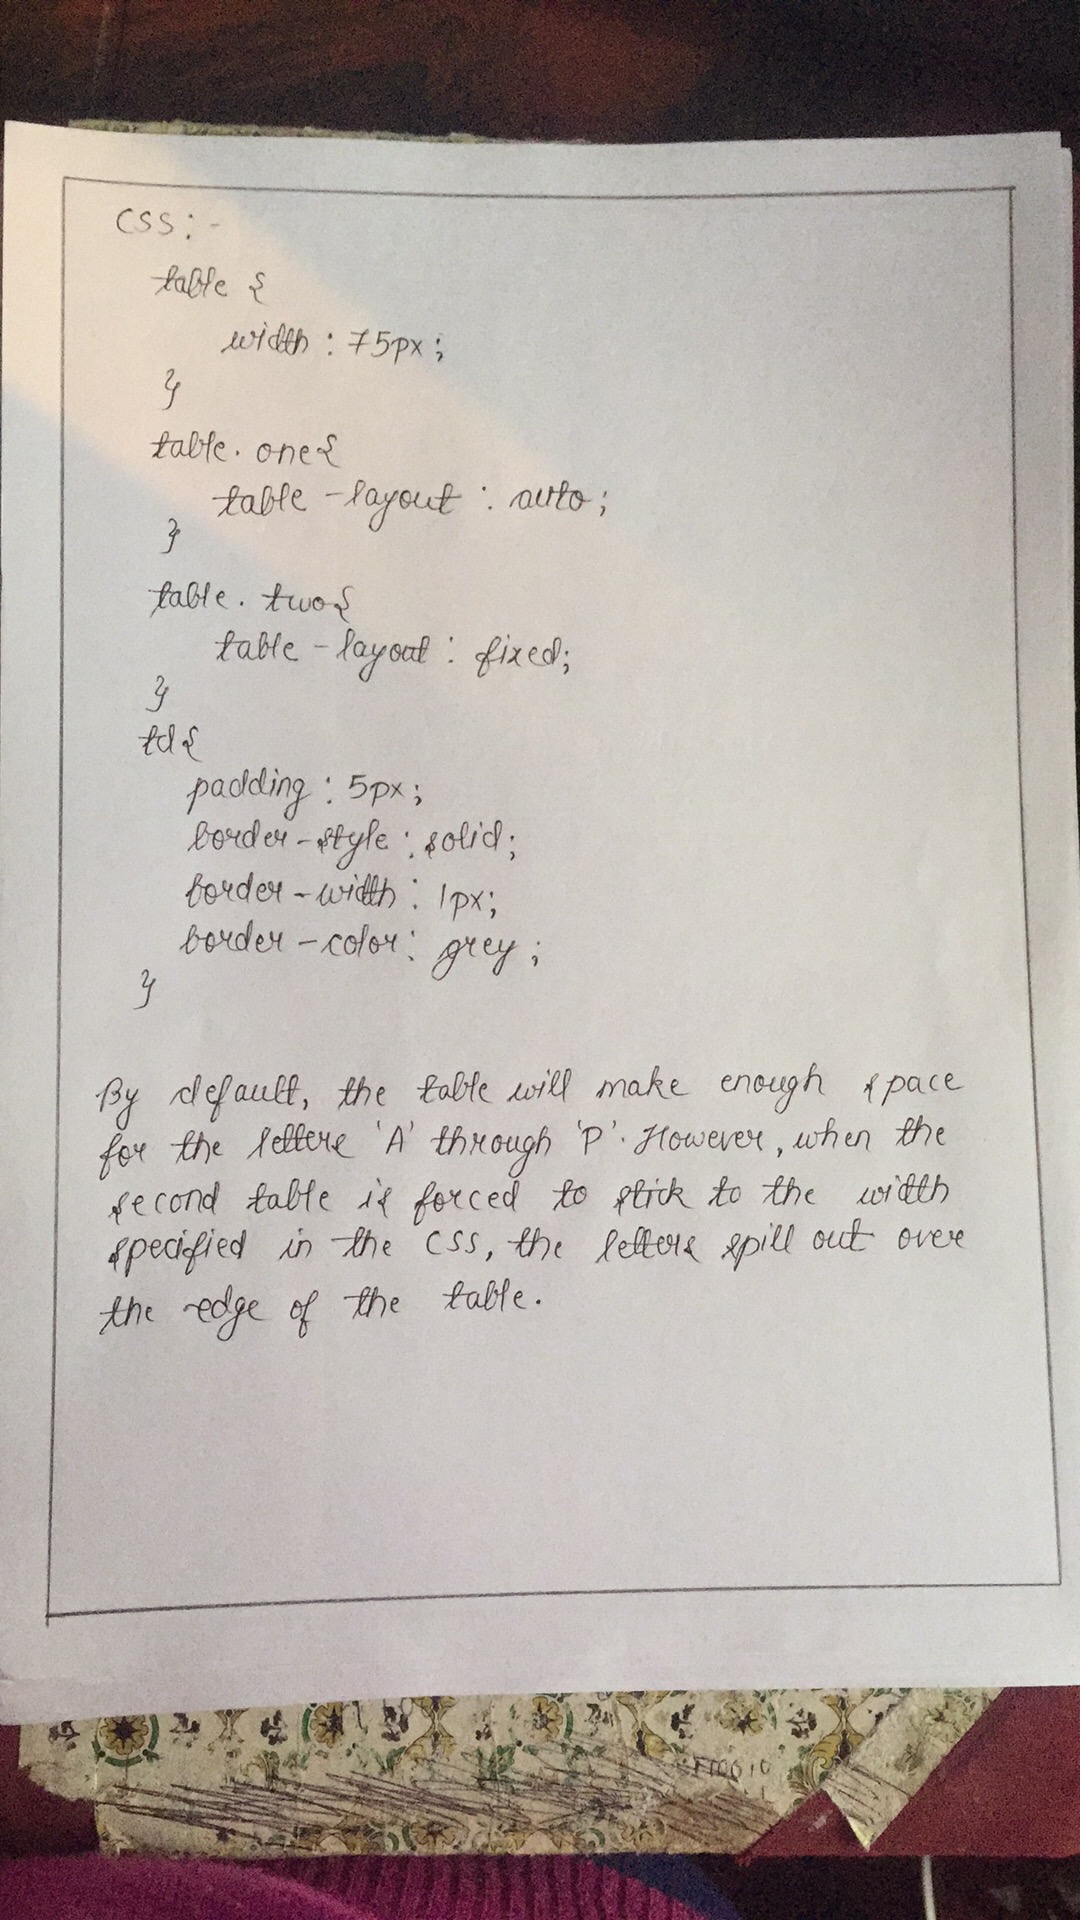 CSS:-
table {
width : 75px;
}
table. one{
table -layout : auto;
}
table. two{
table -layout : fixed;
}
td{
padding : 5px;
border-style : solid;
border-width : 1px;
border-color : grey;
}
By default, the table will make enough space
for the letters 'A' through 'P'. However, when the
second table is forced to stick to the width
specified in the CSS, the letters spill out over
the edge of the table.